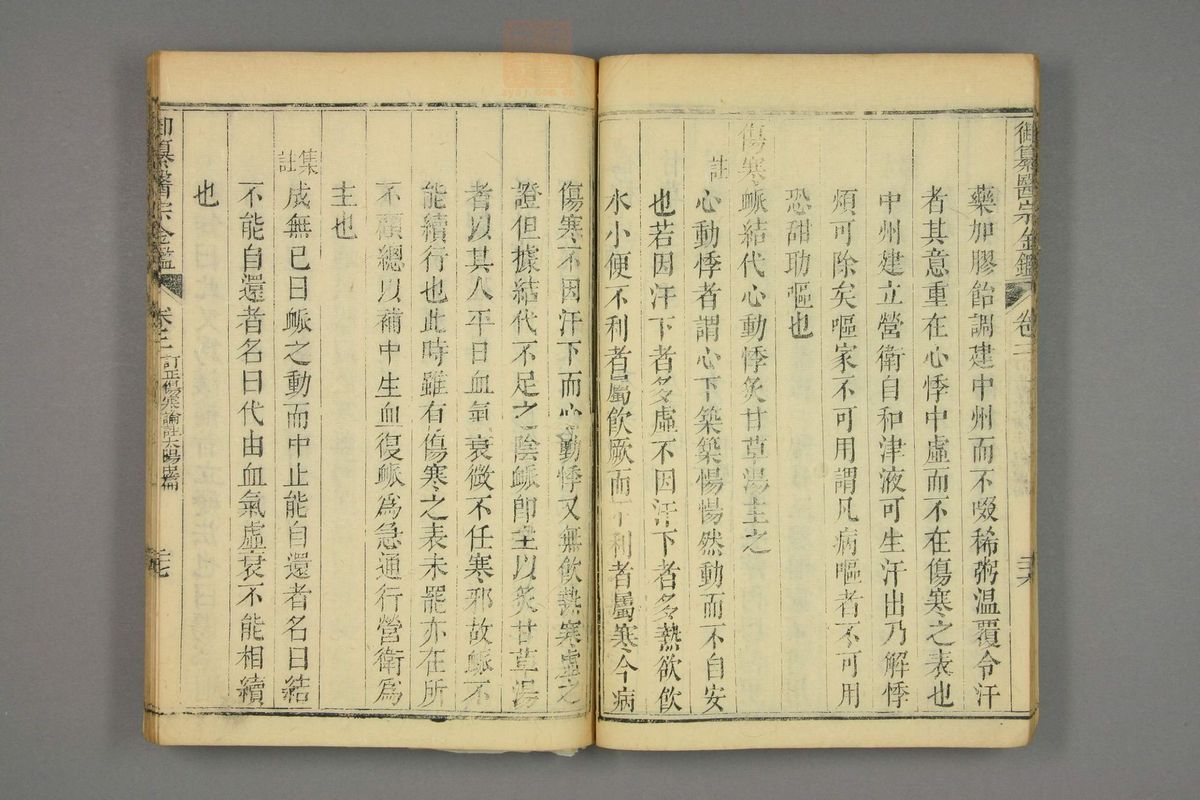 御纂醫宗金鑑 卷二
三六
藥加膠飴調建中州而不啜稀粥溫覆令汗
者其意重在心悸中虛而不在傷寒之表也
中州建立營衛自和津液可生汗出乃解悸
煩可除矣嘔家不可用謂凡病嘔者不可用
恐甜助嘔也
傷寒脈結代心動悸炙甘草湯主之
註心動悸者謂心下築築惕惕然動而不自安
也若因汗下者多虛不因汗下者多熱欲飲
水小便不利者屬飲厥而下利者屬寒今病
傷寒不因汗下而心動悸又無飲熱寒虛之
證但據結代不足之陰脈即主以炙甘草湯
者以其人平日血氣衰微不任寒邪故脈不
能續行也此時雖有傷寒之表未罷亦在所
不顧總以補中生血復脈為急通行營衛為
主也
集註成無已曰脈之動而中止能自還者名曰結
不能自還者名曰代由血氣虛衰不能相續
也
御纂醫宗金鑑 卷二 訂正傷寒論註太陽中篇
三七